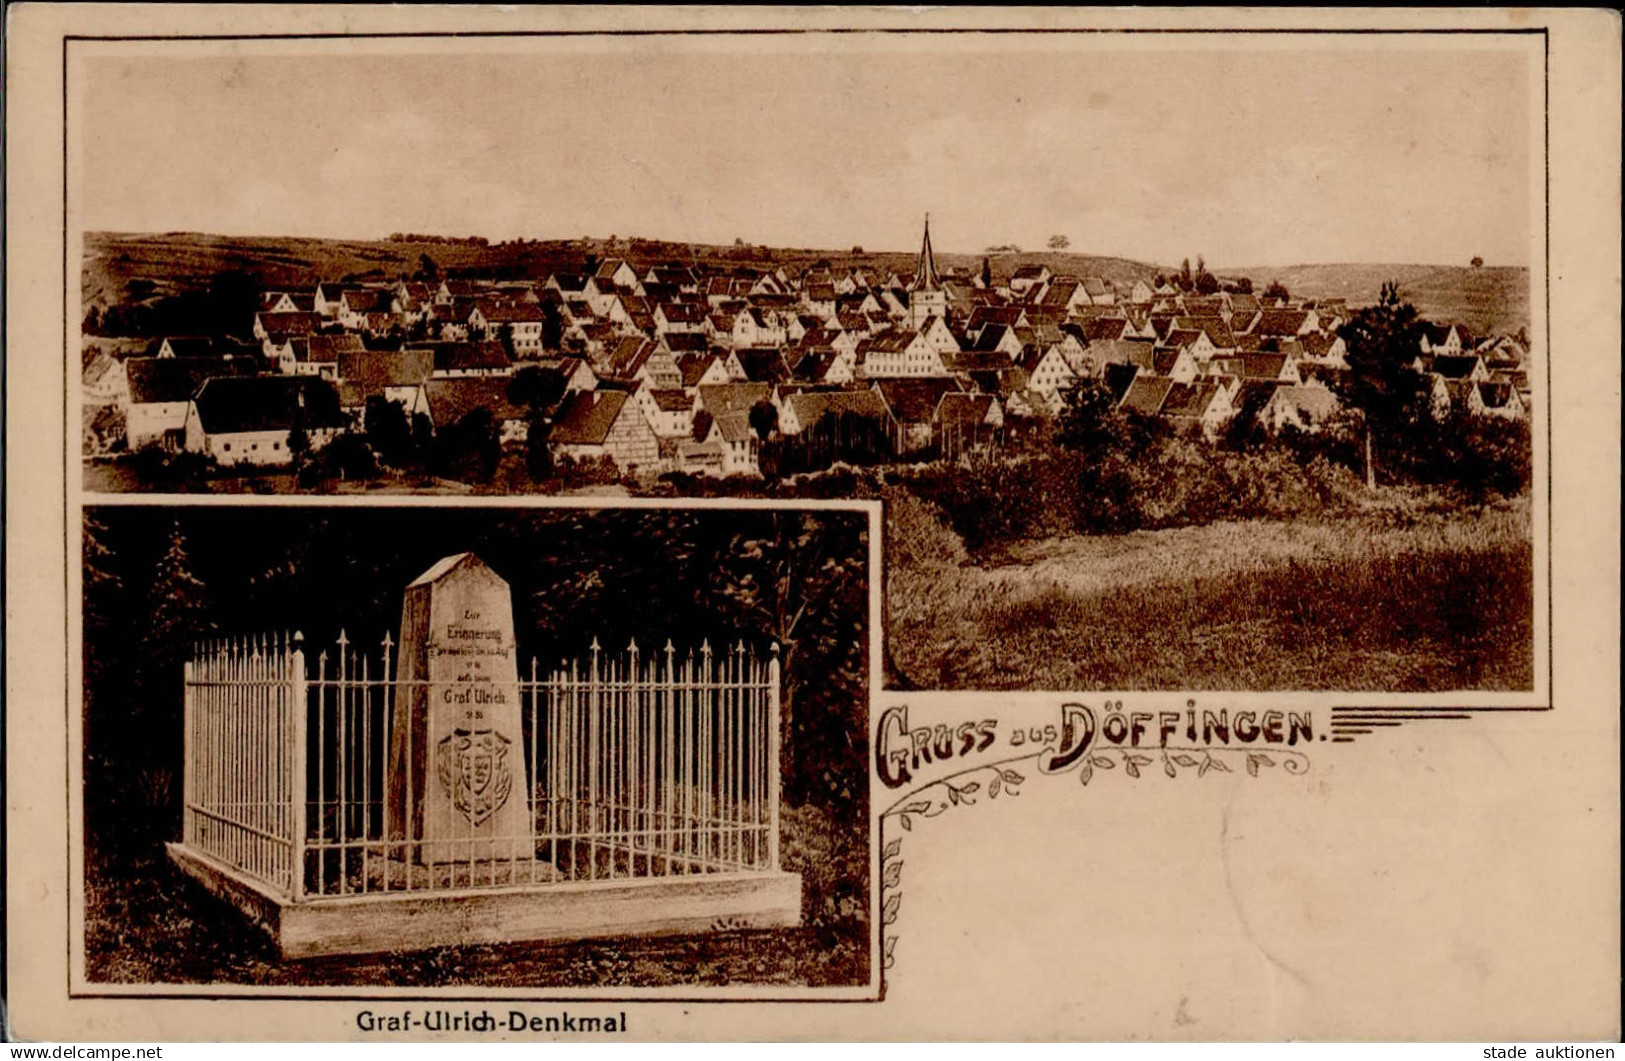 Zur
Erinnerung
Graf Ulrich
GRUSS aus DÖFFINGEN.
Graf-Ulrich-Denkmal
www.delcampe.net
stade auktionen